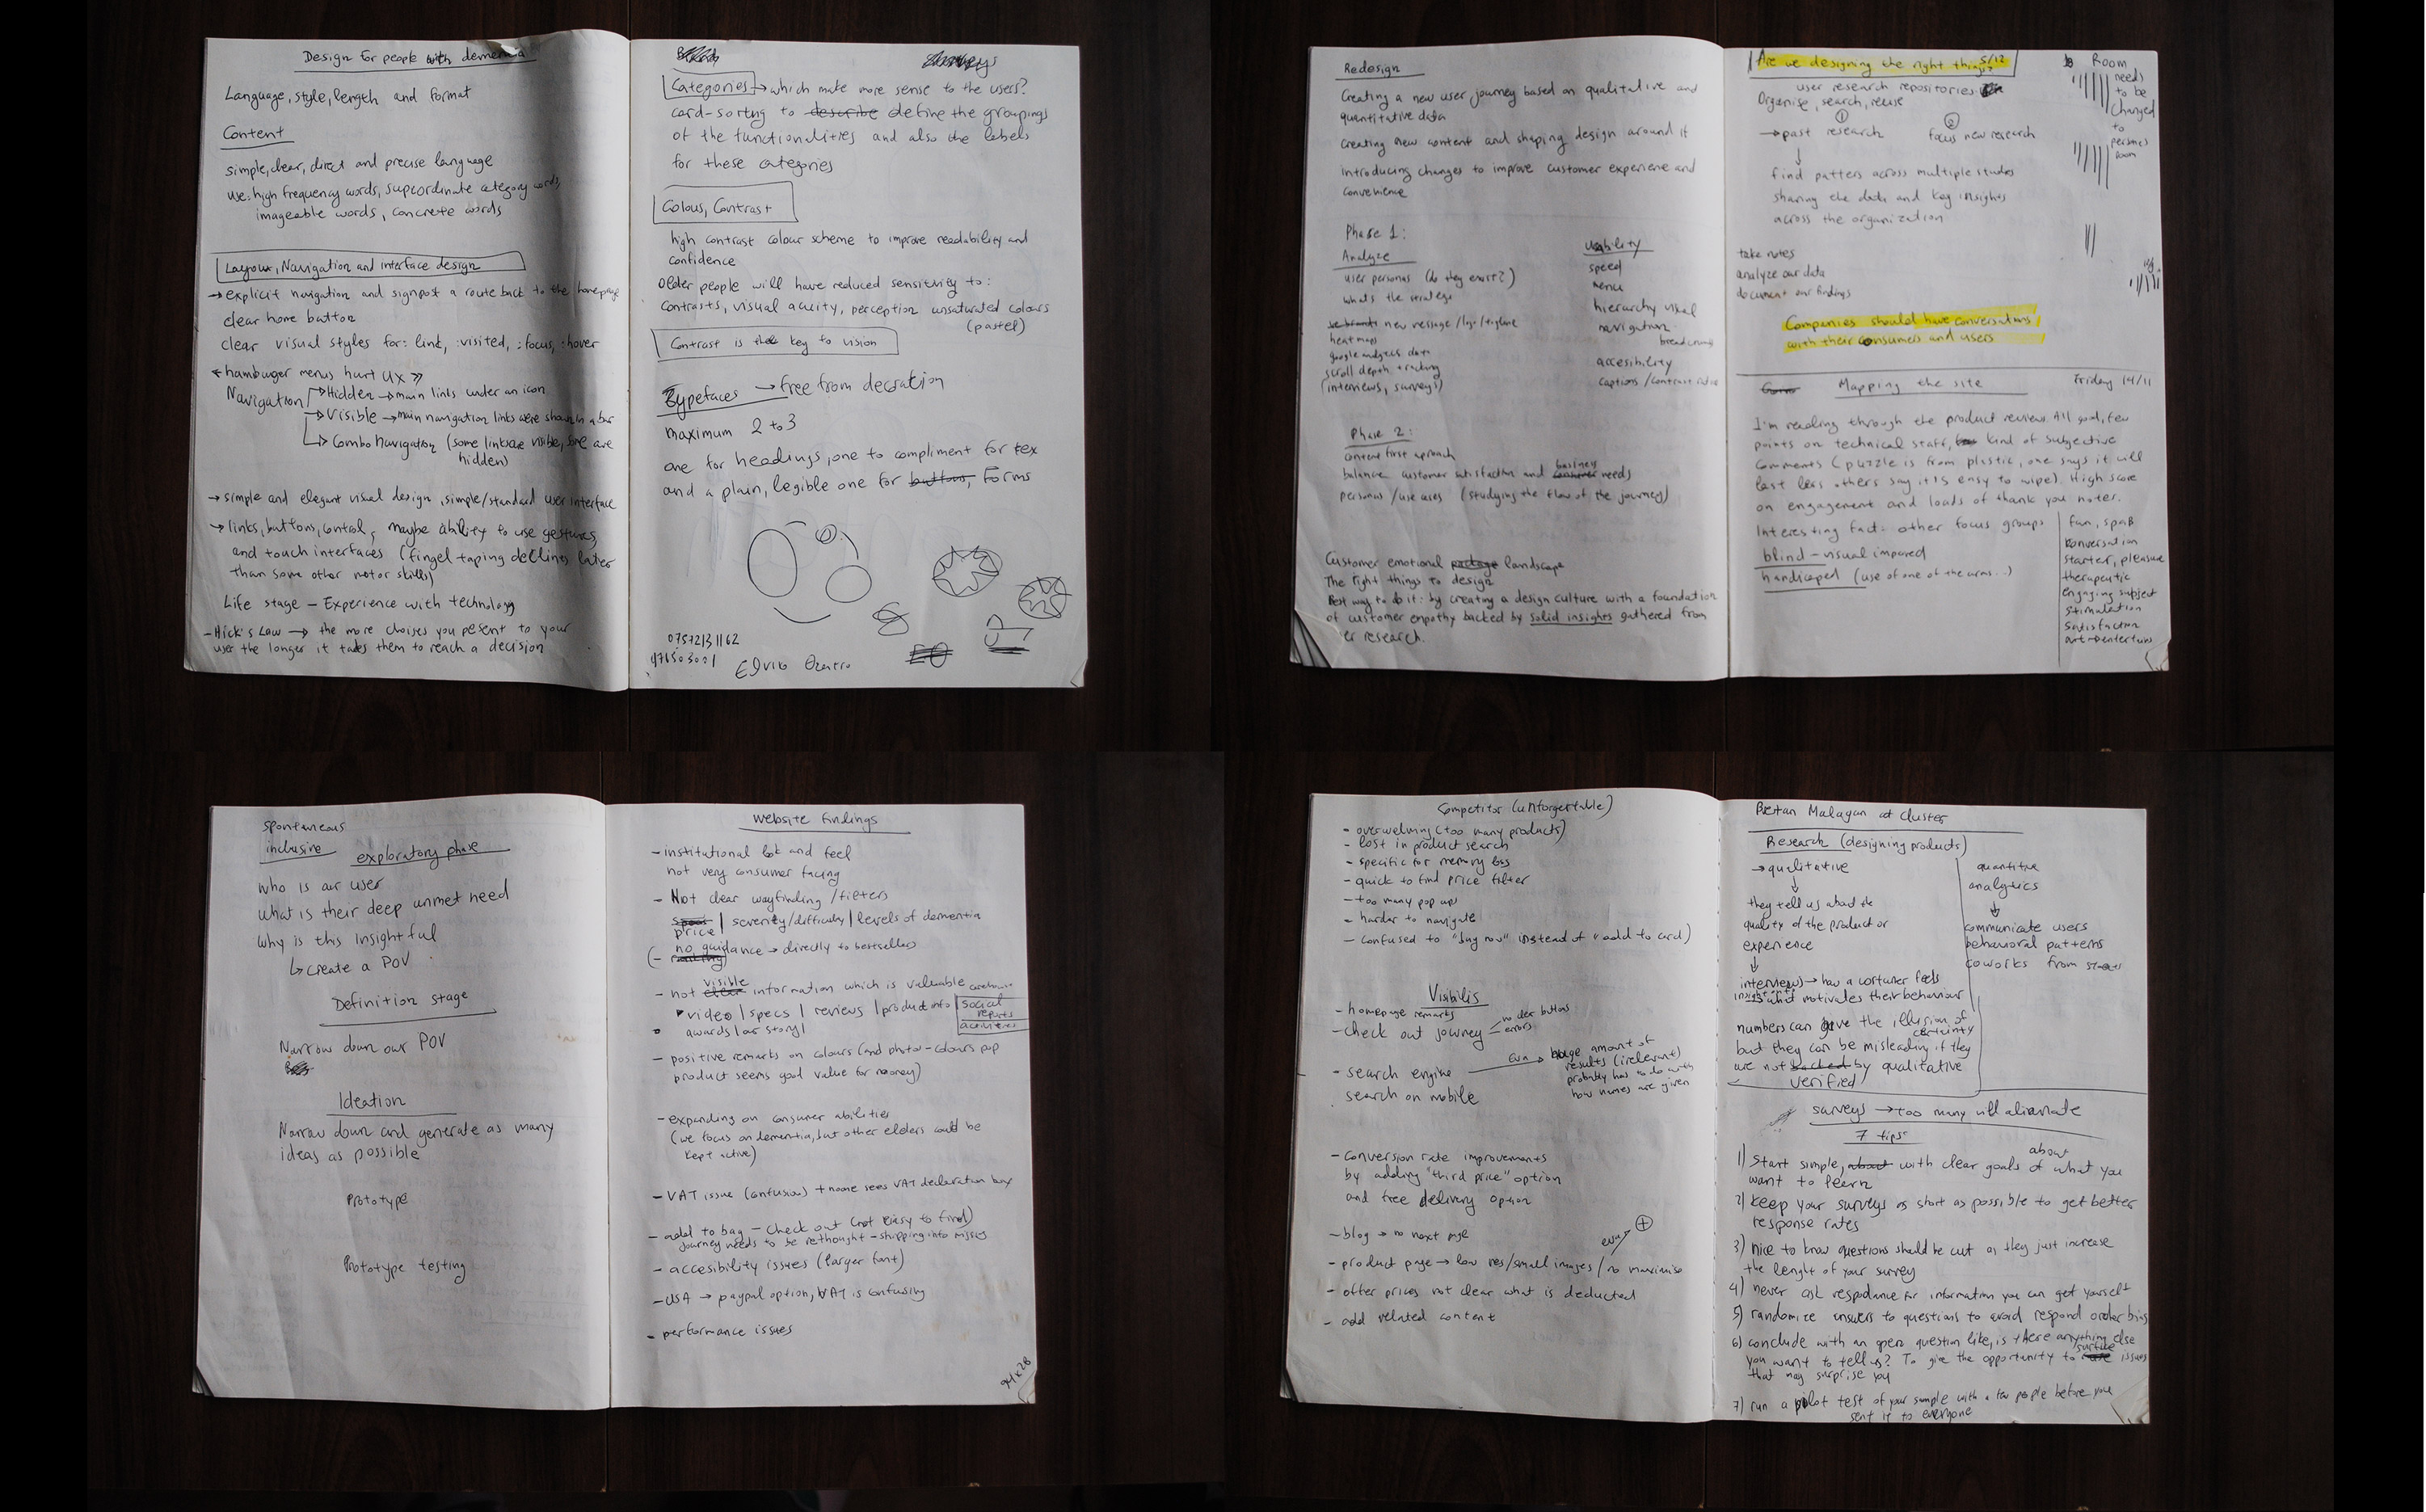 Design for people with dementia
Language, style, length and format
Content
simple, clear, direct and precise language
use: high frequency words, supcordinate category words,
imageable words, concrete words
Layout, Navigation and interface design
→ explicit navigation and signpost a route back to the homepage
clear home button
clear visual styles for: link, :visited, :focus, :hover
« hambuger menus hurt UX »
Navigation → Hidden → main links under an icon
→ Visible → main navigation links were shown in a bar
→ Combo Navigation (some links are visible, some are
hidden)
→ simple and elegant visual design, simple/standard user interface
→ links, buttons, control, maybe ability to use gestures
and touch interfaces (fingel taping declines later
than some other motor skills)
Life stage - Experience with technology
- Hick's Law → the more choises you pesent to your
user the longer it takes them to reach a decision
Categories → which make more sense to the users?
card-sorting to describe define the groupings
of the functionalities and also the labels
for these categories
Colous, Contrast
high contrast colour scheme to improve readability and
confidence
Older people will have reduced sensitivity to:
contrasts, visual acuity, perception unsaturated colours
(pastel)
Contrast is the key to vision
Typefaces → free from decoration
maximum 2 to 3
one for headings, one to compliment for tex
and a plain, legible one for buttons, Forms
07572131162
Redesign
Creating a new user journey based on qualitative and
quantitative data
creating new content and shaping design around it
introducing changes to improve customer experiene and
convenience
Phase 1:
Analyze
user personas (do they exist?)
whats the strategy
new message/logo/tagline
heat maps
google analytics data
scroll depth tracking
(interviews, surveys)
Usability
speed
menu
hierarchy visual
navigation
breadcrumbs
accesibility
captions/contrast
Phase 2:
content first aproach
balance customer satisfaction and business needs
personas/use cases (studying the flow of the journey)
Customer emotional package landscape
The right things to design
Best way to do it: by creating a design culture with a foundation
of customer empathy backed by solid insights gathered from
er research.
Are we designing the right things? 5/12
user research repositories
Organise, search, reuse
① ②
→ past research focus new research
find patters across multiple studies
sharing the data and key insights
across the organization
take notes
analyze our data
document our findings
Companies should have conversations
with their consumers and users
Room
needs
to be
changed
to
persones
Room
Mapping the site Friday 14/11
I'm reading through the product review. All good, few
points on technical staff, kind of subjective
comments (puzzle is from plastic, one says it will
last less others say it is easy to wipe). High score
on engagement and loads of thank you notes.
Interesting fact: other focus groups
blind - visual impared
handicaped (use of one of the arms...)
fun, spaß
konversation
starter, pleasure
therapeutic
engaging subject
stimulation
satisfaction
spontaneous
inclusive exploratory phase
who is our user
what is their deep unmet need
why is this insightful
↳ create a POV
Definition stage
Narrow down our POV
Ideation
Narrow down and generate as many
ideas as possible
Prototype
Prototype testing
Website findings
- institutional look and feel
not very consumer facing
- Not clear wayfinding / filters
price | severity/difficulty | levels of dementia
(- no guidance → directly to bestsellers
- not visible information which is valuable
video | specs | reviews | product info | social
reports
awards | our story | activities
- positive remarks on colours (and photo - colours pop
product seems good value for money)
- expanding on consumer abilities
(we focus on dementia, but other elders could be
kept active)
- VAT issue (confusion) + noone sees VAT declaration box
- add to bag - check out (not easy to find)
journey needs to be rethought - shipping info missing
- accesibility issues (larger font)
- USA → paypal option, VAT is confusing
- performance issues
Competitor (unforgettable)
- overwelming (too many products)
- lost in product search
- specific for memory loss
- quick to find price filter
- too many pop ups
- harder to navigate
- confused to "buy now" instead of "add to card)
Visibilis
- homepage remarks
- check out journey
errors
- search engine → huge amount of
results (irelevant)
probably has to do with
how names are given
search on mobile
- conversion rate improvements
by adding "third price" option
and free delivery option
- blog → no next page
- product page → low res/small images / no maximise
- offer prices not clear what is deducted
- add related content
Research (designing products)
→ qualitative
they tell us about the
quality of the product or
experience
interviews → how a costumer feels
insights
is what motivates their behaviour
quantitive
analytics
communicate users
behavioral patterns
numbers can give the illusion of
certainty
but they can be misleading if they
are not backed by qualitative
verified
surveys → too many will alienate
7 tips
1) start simple, about with clear goals about of what you
want to learn
2) keep your surveys as short as possible to get better
response rates
3) nice to know questions should be cut as they just increase
the lenght of your survey
4) never ask respodance for information you can get yourself
5) randomize answers to questions to avoid respond order bias
6) conclude with an open question like, is there anything else
you want to tell us? To give the opportunity to surface issues
that may surprise you
7) run a pilot test of your sample with a few people before you
sent it to everyone